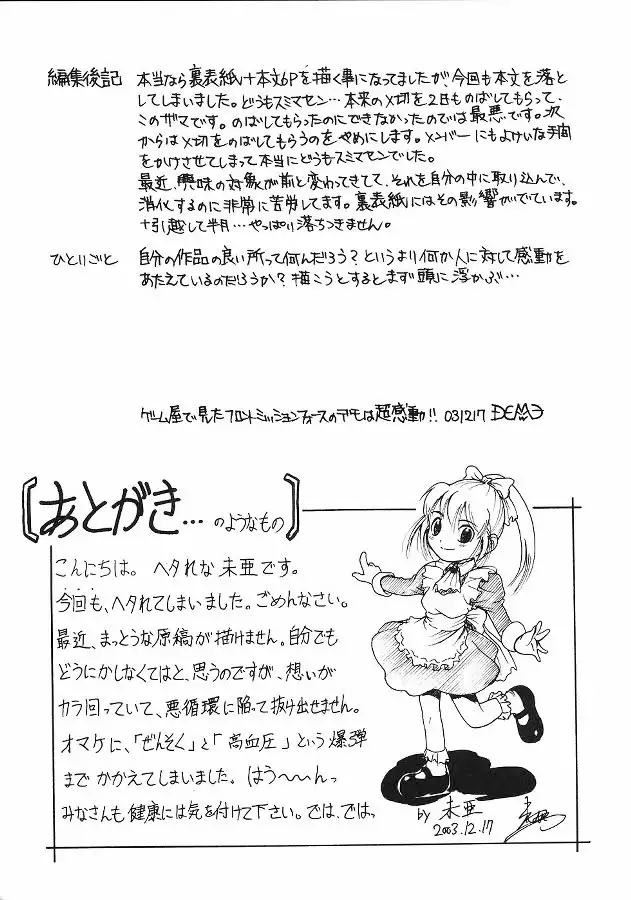 編集後記
本当なら裏表紙+本文6Pを描く事になってましたが、今回も本文を落と
してしまいました。どうもスミマセン…本来の〆切を2日ものばしてもらって、
このザマです。のばしてもらったのにできなかったのでは最悪です。次
からは〆切をのばしてもらうのをやめにします。メンバーにもよけいな手間
をかけさせてしまって本当にどうもスミマセンでした。
最近、興味の対象が前と変わってきてて、それを自分の中に取り込んで、
消化するのに非常に苦労してます。裏表紙にはその影響がでています。
+引越して半月…やっぱり落ちつきません。
ひとりごと
自分の作品の良い所って何んだろう?というより何か人に対して感動を
あたえているのだろうか?描こうとするとまず頭に浮かぶ…
ゲーム屋で見たフロントミッションフォースのデモは超感動!! 031217
[あとがき…のようなもの]
こんにちは。ヘタれな未亜です。
今回も、ヘタれてしまいました。ごめんなさい。
最近、まっとうな原稿が描けません。自分でも
どうにかしなくてはと、思うのですが、想いが
カラ回っていて、悪循環に陥って抜け出せません。
オマケに、「ぜんそく」と「高血圧」という爆弾
までかかえてしまいました。はう〜〜んっ
みなさんも健康には気を付けて下さい。では、では。
by 未亜
2003.12.17